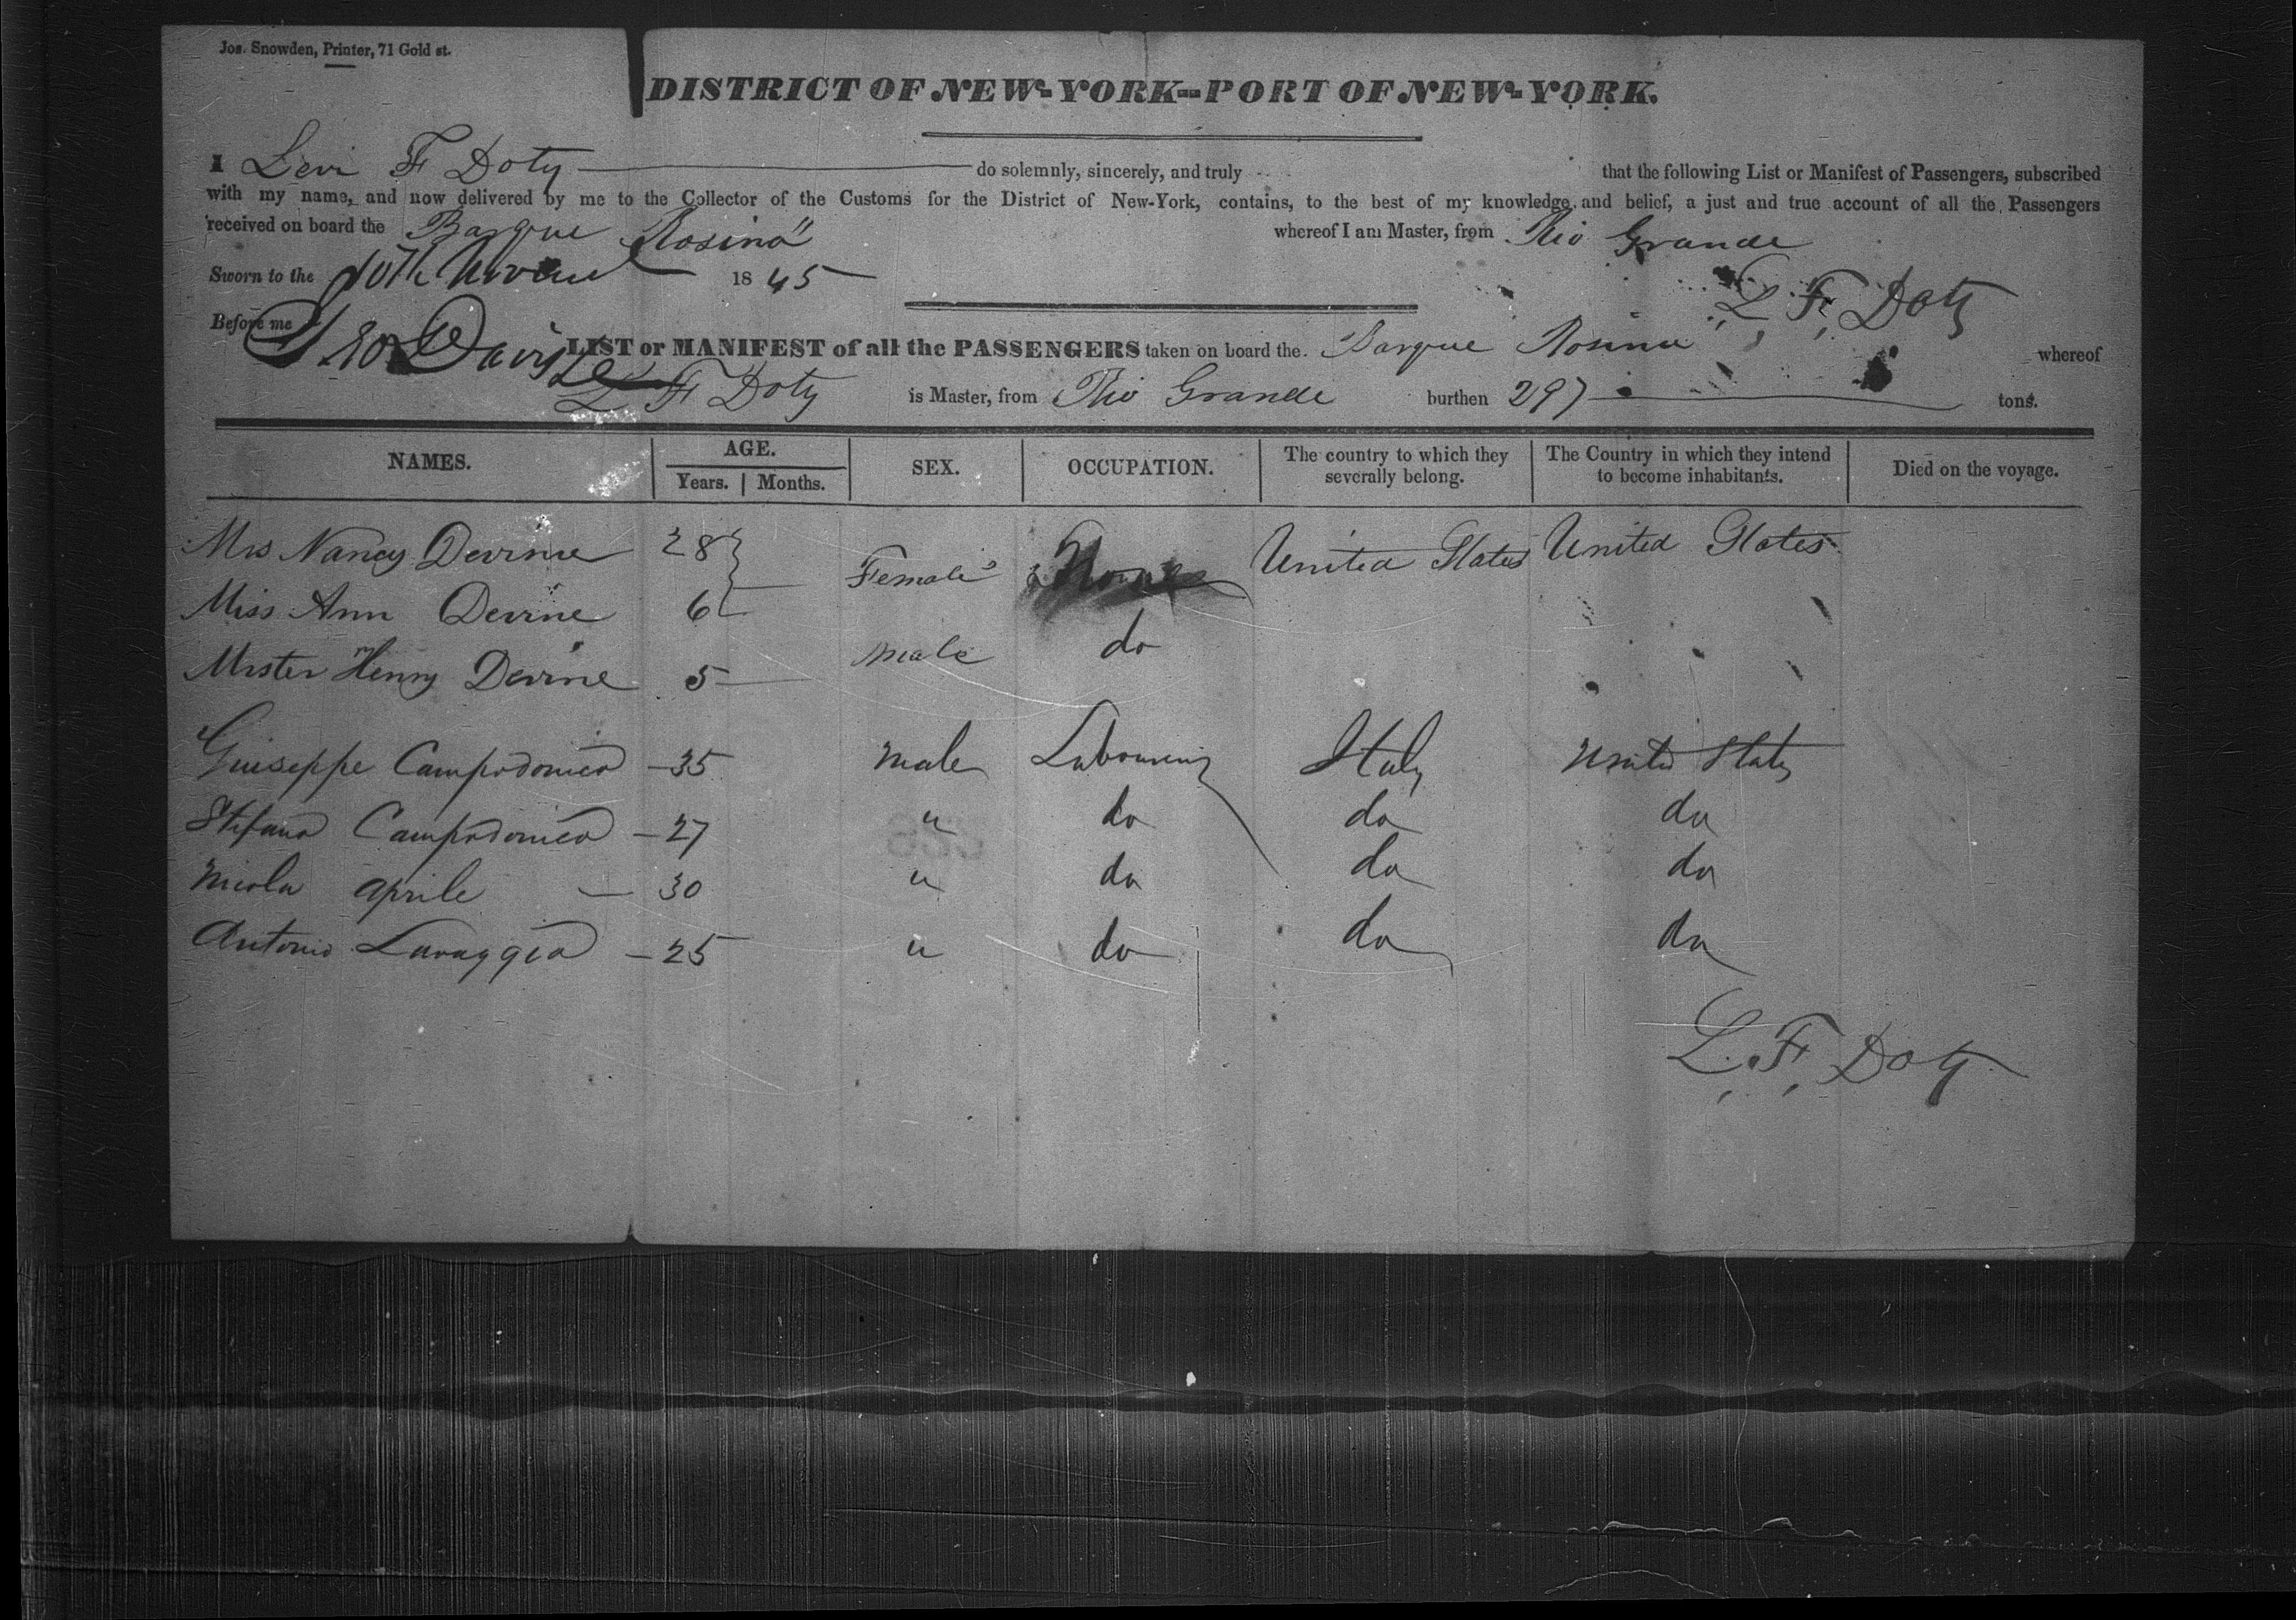 Jos. Snowden, Printer, 71 Gold st.
DISTRICT OF NEW-YORK--PORT OF NEW-YORK.
I Levi F Doty do solemnly, sincerely, and truly that the following List or Manifest of Passengers, subscribed
with my name, and now delivered by me to the Collector of the Customs for the District of New-York, contains, to the best of my knowledge and belief, a just and true account of all the Passengers
received on board the Barque "Rosina" whereof I am Master, from Rio Grande
Sworn to the 10th 1845
L. F. Doty
Before me Geo Davis
LIST or MANIFEST of all the PASSENGERS taken on board the Barque Rosina whereof
L F Doty is Master, from Rio Grande burthen 297 tons.
NAMES. AGE. Years. Months. SEX. OCCUPATION. The country to which they severally belong. The Country in which they intend to become inhabitants. Died on the voyage.
Mrs Nancy Devine 28 Female United States United States
Miss Ann Devine 6
Mister Henry Devine 5 male do
Giuseppe Campodonico 35 male Labouring Italy United States
Stefano Campodonico 27 " do do do
Nicola Aprile 30 " do do do
Antonio Lavaggio 25 " do do do
L. F. Doty